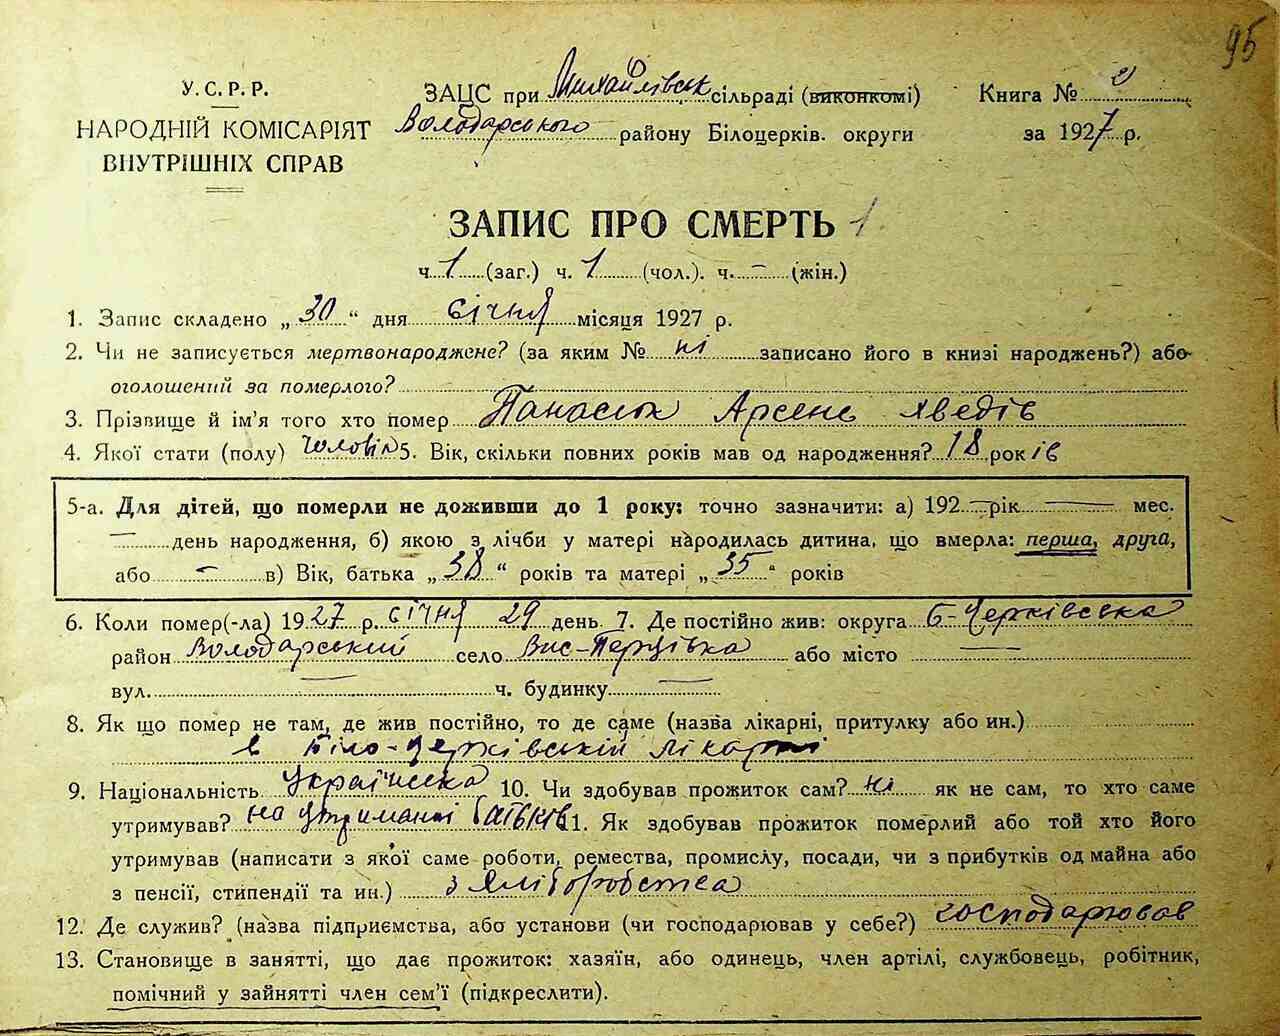 95
У.С.Р.Р.
НАРОДНІЙ КОМІСАРІЯТ
ВНУТРІШНІХ СПРАВ
ЗАЦС при Михайлівськ сільраді (виконкомі)
Володарського району Білоцерків. округи
Книга № 2
за 1927 р.
ЗАПИС ПРО СМЕРТЬ 1
ч. 1 (заг.) ч. 1 (чол.). ч. – (жін.)
1. Запис складено „30“ дня січня місяця 1927 р.
2. Чи не записується мертвонароджене? (за яким № ні записано його в книзі народжень?) або
оголошений за померлого?
3. Прізвище й ім'я того хто помер Панасюк Арсень Хведів
4. Якої стати (полу) чоловіч 5. Вік, скільки повних років мав од народження? 18 років
5-а. Для дітей, що померли не доживши до 1 року: точно зазначити: а) 192 — рік — мес.
— день народження, б) якою з лічби у матері народилась дитина, що вмерла: перша, друга,
або – в) Вік, батька „38“ років та матері „35“ років
6. Коли помер(-ла) 1927 р. січня 29 день 7. Де постійно жив: округа Б-Церківська
район Володарський село Вис-Перцівка або місто —
вул. — ч. будинку —
8. Як що помер не там, де жив постійно, то де саме (назва лікарні, притулку або ин.)
в Біло-Церківській лікарні
9. Національність Українська 10. Чи здобував прожиток сам? ні як не сам, то хто саме
утримував? на утриманні батьків 11. Як здобував прожиток померлий або той хто його
утримував (написати з якої саме роботи, ремества, промислу, посади, чи з прибутків од майна або
з пенсії, стипендії та ин.) з хліборобства
12. Де служив? (назва підприємства, або установи (чи господарював у себе?) господарював
13. Становище в занятті, що дає прожиток: хазяїн, або одинець, член артілі, службовець, робітник,
помічний у зайнятті член сем'ї (підкреслити).